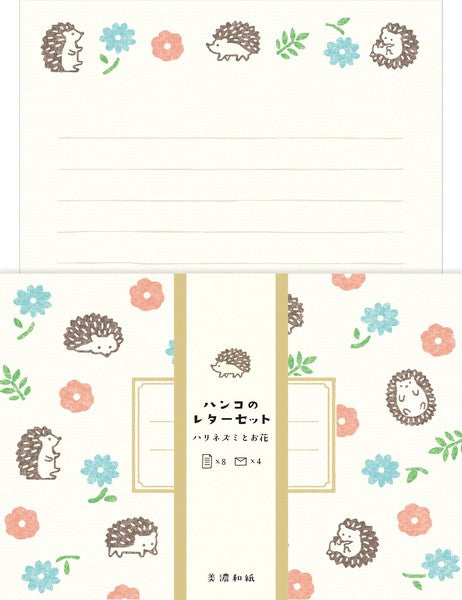 ハンコの
レターセット
ハリネズミとお花
×8 ×4
美濃和紙